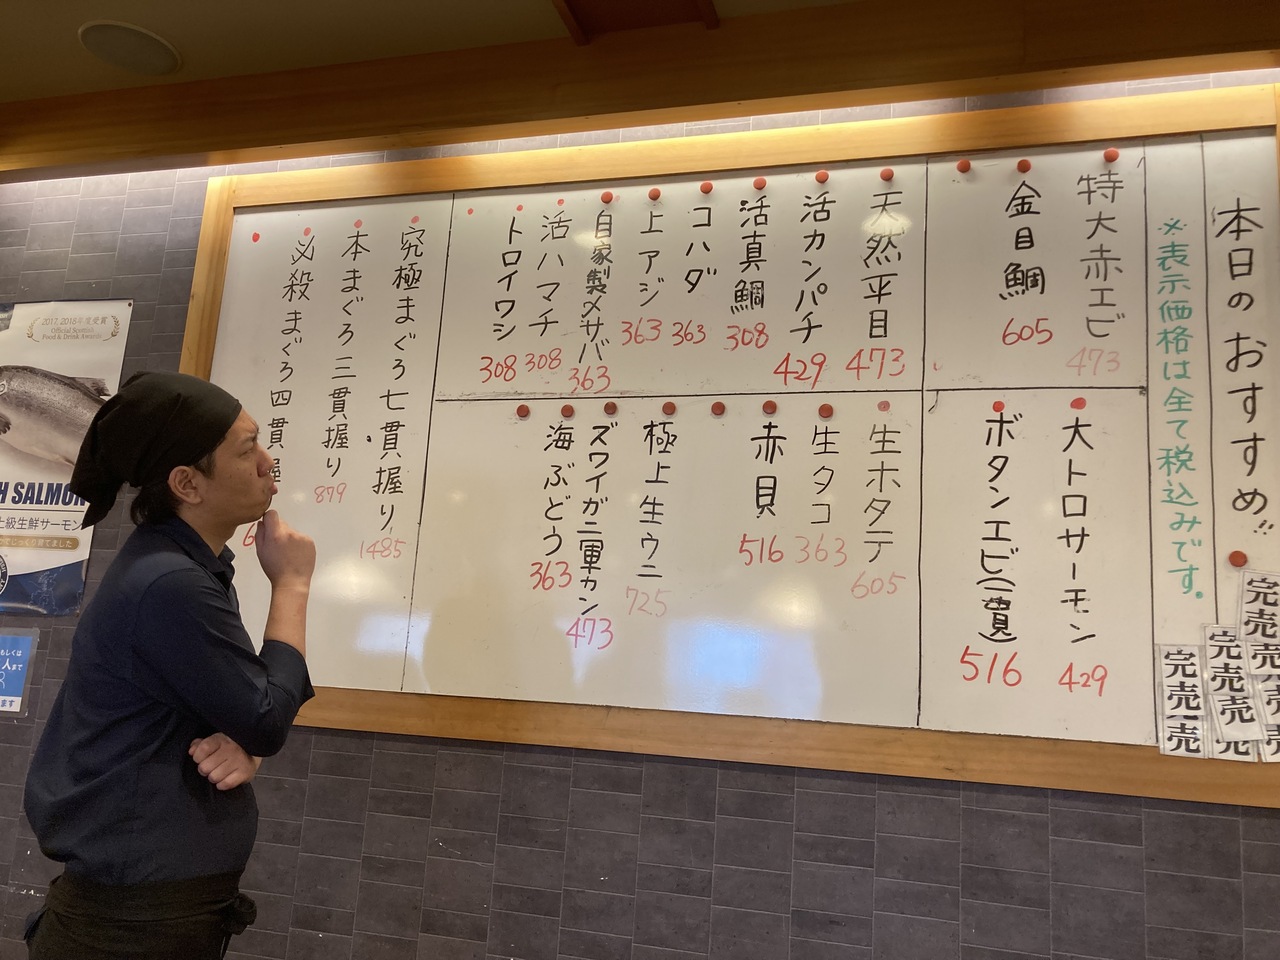 本日のおすすめ!!
※表示価格は全て税込みです。
特大赤エビ
473
金目鯛
605
大トロサーモン
429
ボタンエビ(一貫)
516
天然平目
473
活カンパチ
429
活真鯛
308
コハダ
363
上アジ
363
自家製〆サバ
363
活ハマチ
308
トロイワシ
308
生ホタテ
605
生タコ
363
赤貝
516
極上生ウニ
725
ズワイガニ軍カン
473
海ぶどう
363
究極まぐろ七貫握り
1485
本まぐろ三貫握り
879
必殺まぐろ四貫握
6
完売
完売
完売
完売
売
2017, 2018年度受賞
Official Scottish
Food & Drink Awards
H SALMON
上級生鮮サーモン
でじっくり育てました
もしくは
人まで
ます